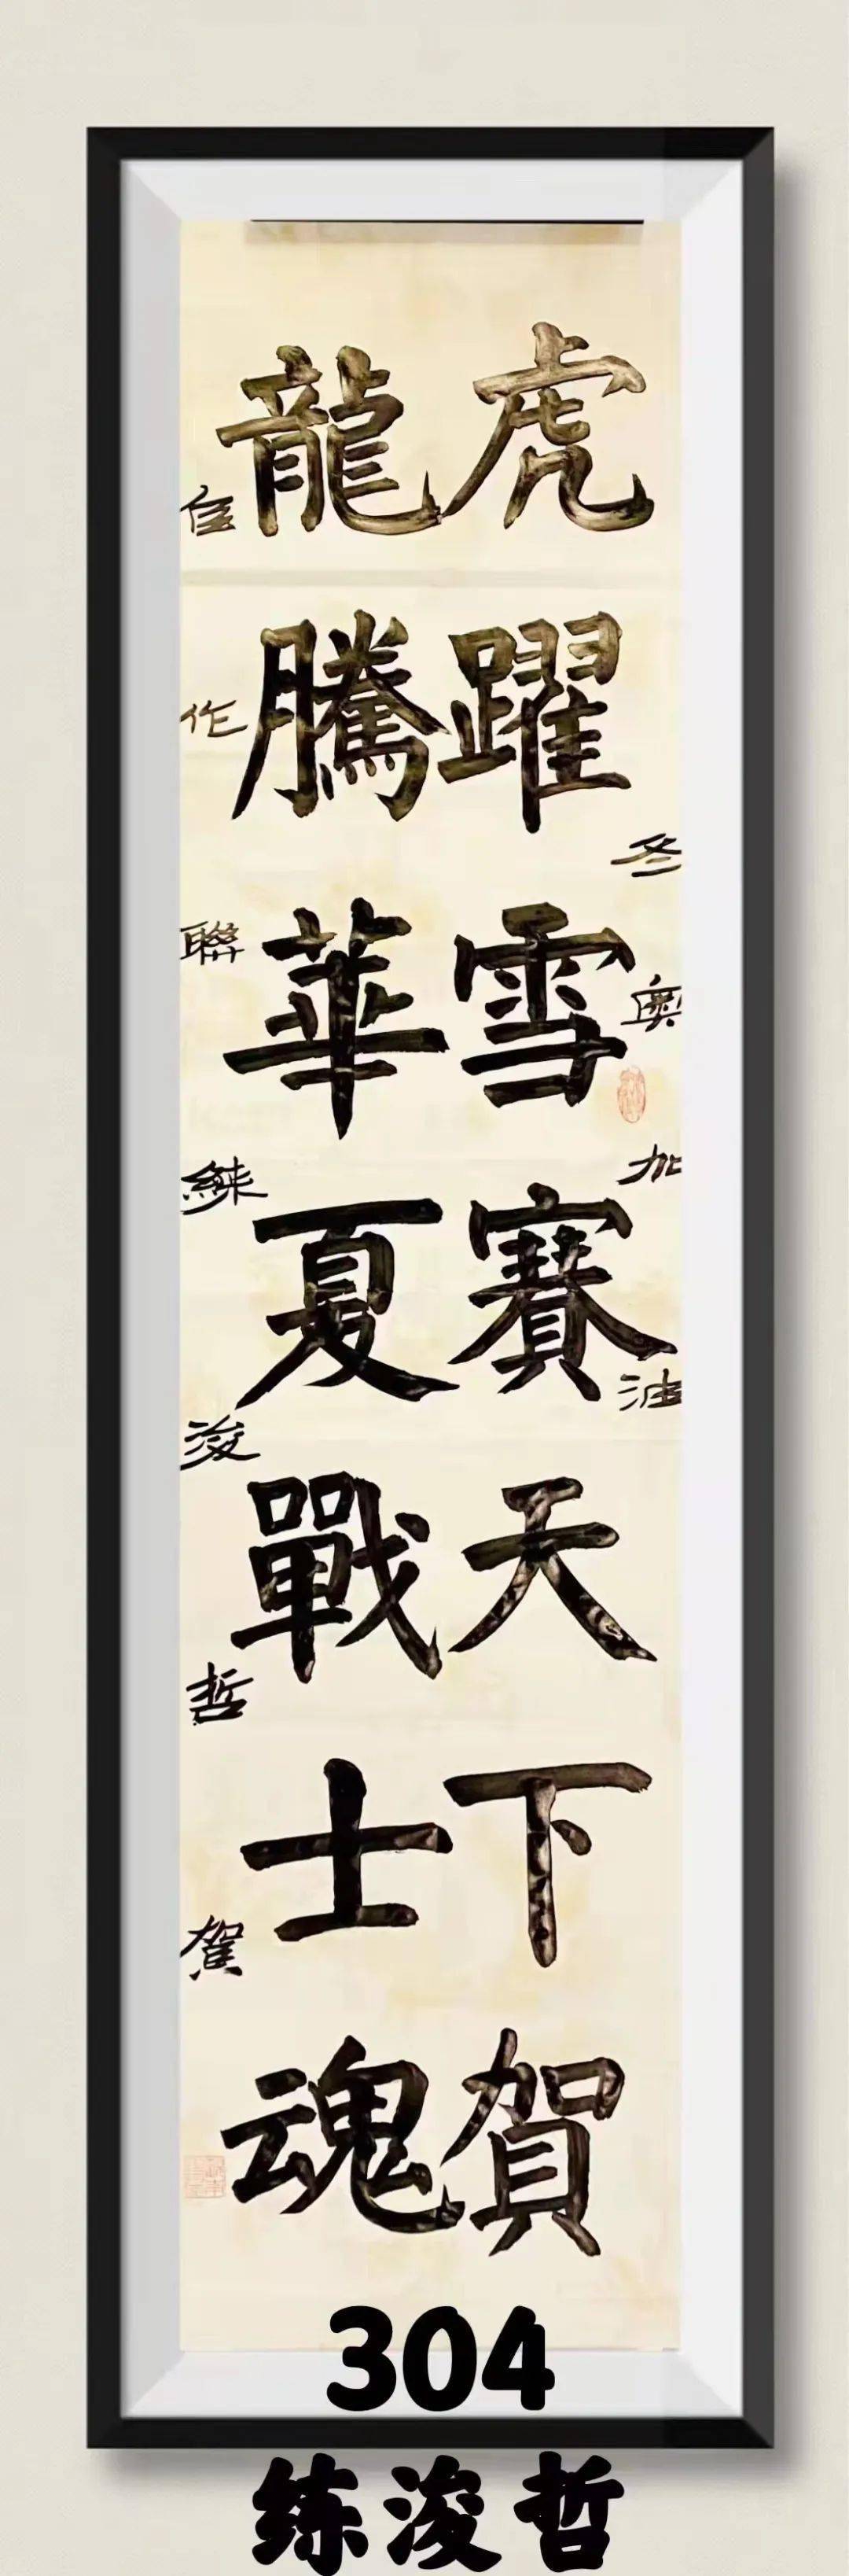 冬奥加油
虎躍雪賽天下賀
龍騰華夏戰士魂
自作聯練浚哲賀
304
练浚哲